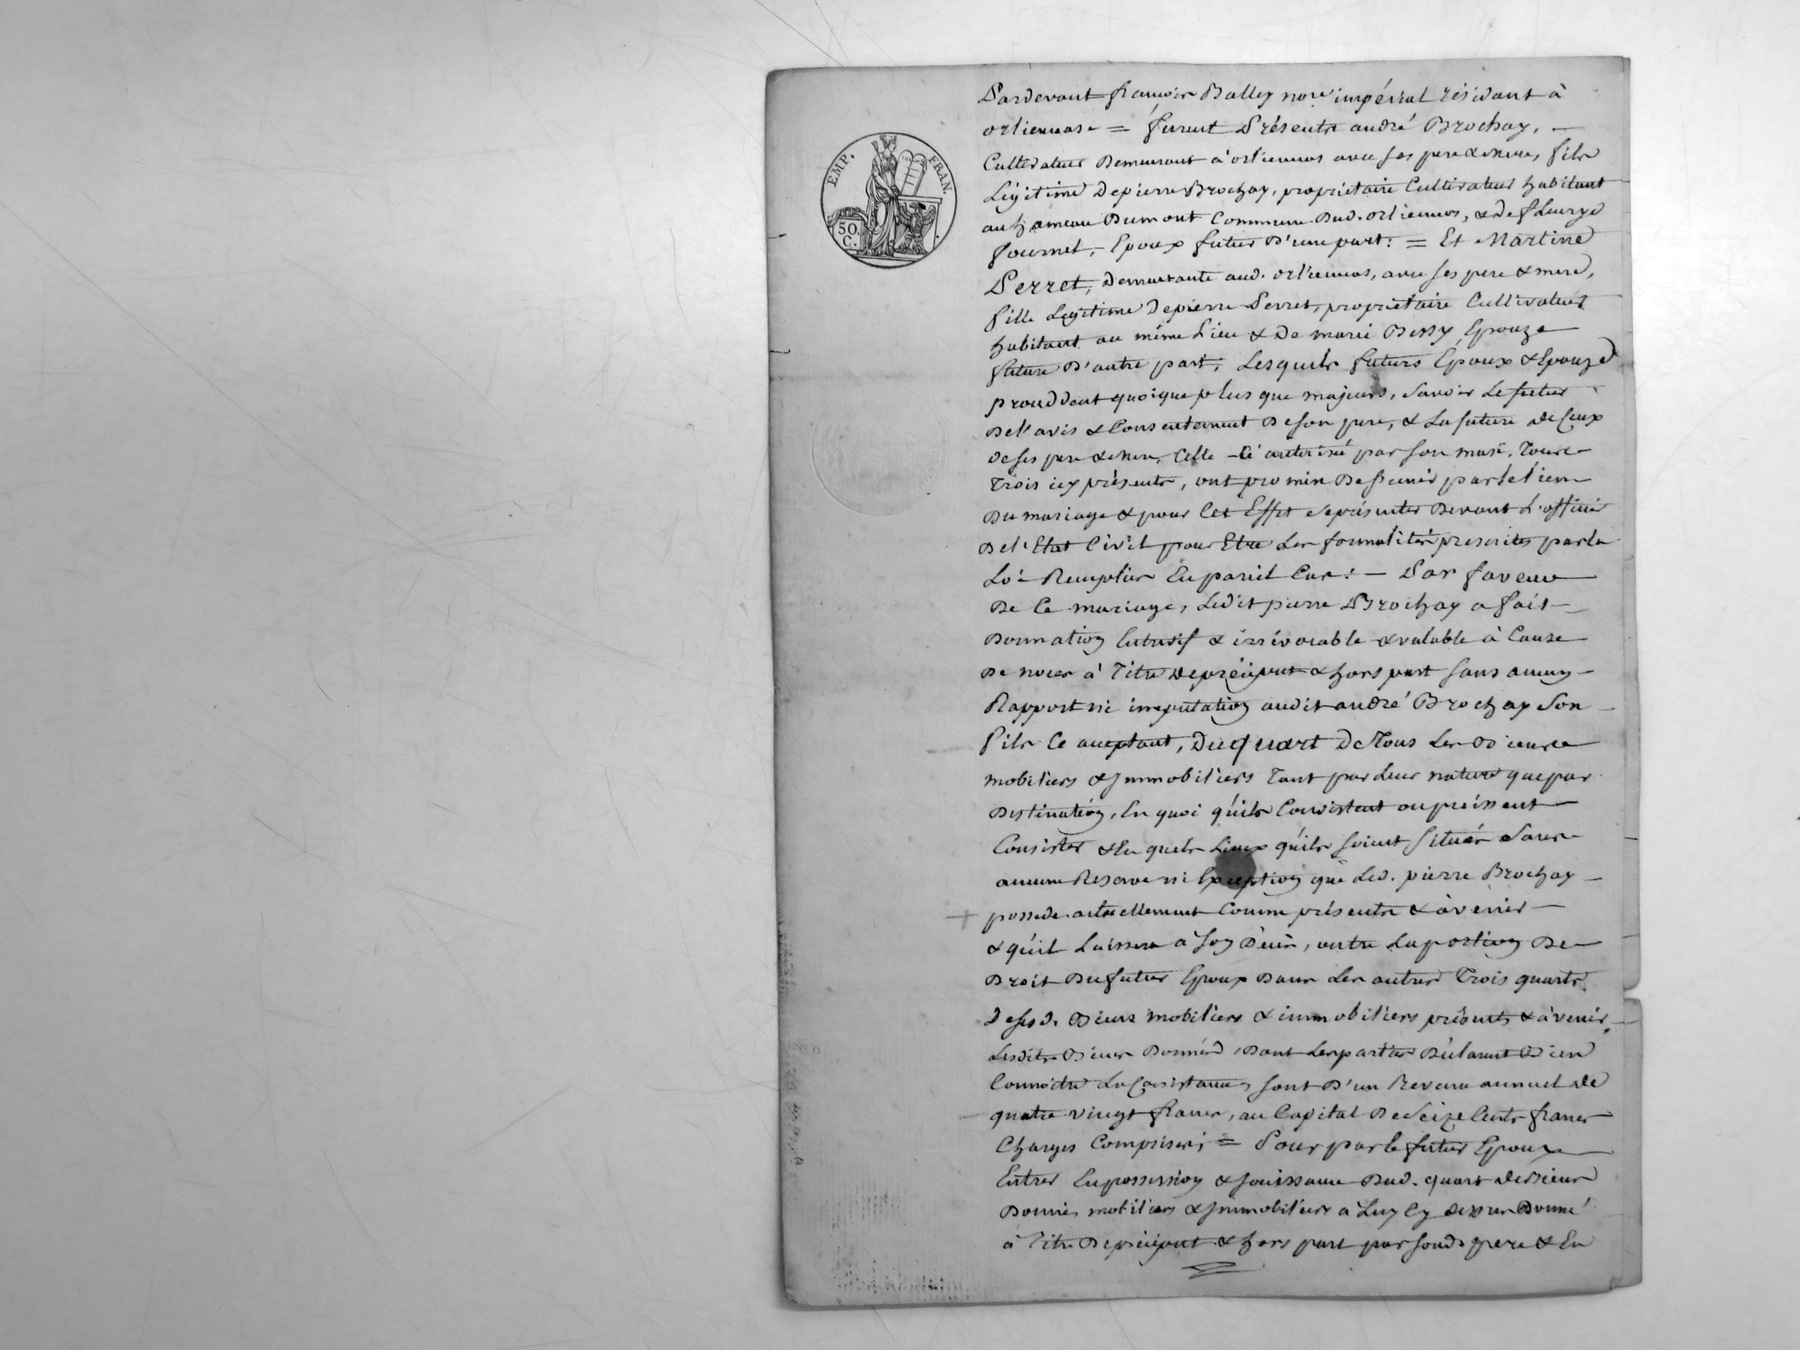 EMP. FRAN.
50. C.
Pardevant françois Balley nore impérial résidant à
orlienas = furent Présents andré Brochay,
Cultivateur Demeurant à orlienas avec ses pere & mere, fils
Légitime De pierre Brochay, propriétaire Cultivateur habitant
au hameau Dumont Commune Dud. orlienas, & de fleurye
fournel, Epoux futur D'une part: = Et Martine
Perret, Demeurante aud. orlienas, avec ses pere & mere,
fille Légitime De pierre Perret, propriétaire Cultivateur
habitant au même Lieu & De marie Bessy Epouze
future D'autre part, Lesquels futurs Epoux & Epouze
procédent quoique plus que majeurs, Savoir Le futur
De l'avis & Consentement De son pere, & La future de Ceux
de ses pere & mere, Celle-Ci autorisé par son mari, Tous
Trois icy présents, ont promis De s'unir par le lien
Du mariage & pour Cet Effet se présenter Devant L'officier
De l'Etat Civil pour Etre Les formalités prescrites par la
Loi Remplies En pareil Cas: — Par faveur
De Ce mariage, Ledit pierre Brochay a fait
Donnation Entrevif & irrévocable & valable à Cause
De noces à Titre De préciput & hors part Sans aucun
Rapport ni imputation audit andré Brochay Son
fils Ce acceptant, Du quart De Tous Les Biens
mobiliers & Immobiliers Tant par Leur nature que par
Destination, En quoi qu'ils Consistent ou puissent
Consister & En quels Lieux qu'ils soient Situés Sans
aucune Reserve ni Exception que Led. pierre Brochay
possede actuellement Comme présents & à venir
& qu'il Laissera à Son Décès, outre La portion De
Droit Du futur Epoux Dans Les autres Trois quarts
de sesd. Biens mobiliers & immobiliers présents & à venir,
Lesdits Biens Donnés, Dont Les parties Déclarent Bien
Connoitre La Consistance, sont D'un Revenu annuel de
quatre vingt francs, au Capital De Seize Cents francs
Charges Comprises; = Pour par le futur Epoux
Entrer En possession & Jouissance Dud. quart de Biens
Donnés mobiliers & Immobiliers à Luy Cy dessus Donné
à Titre De préciput & hors part par sond. pere & En